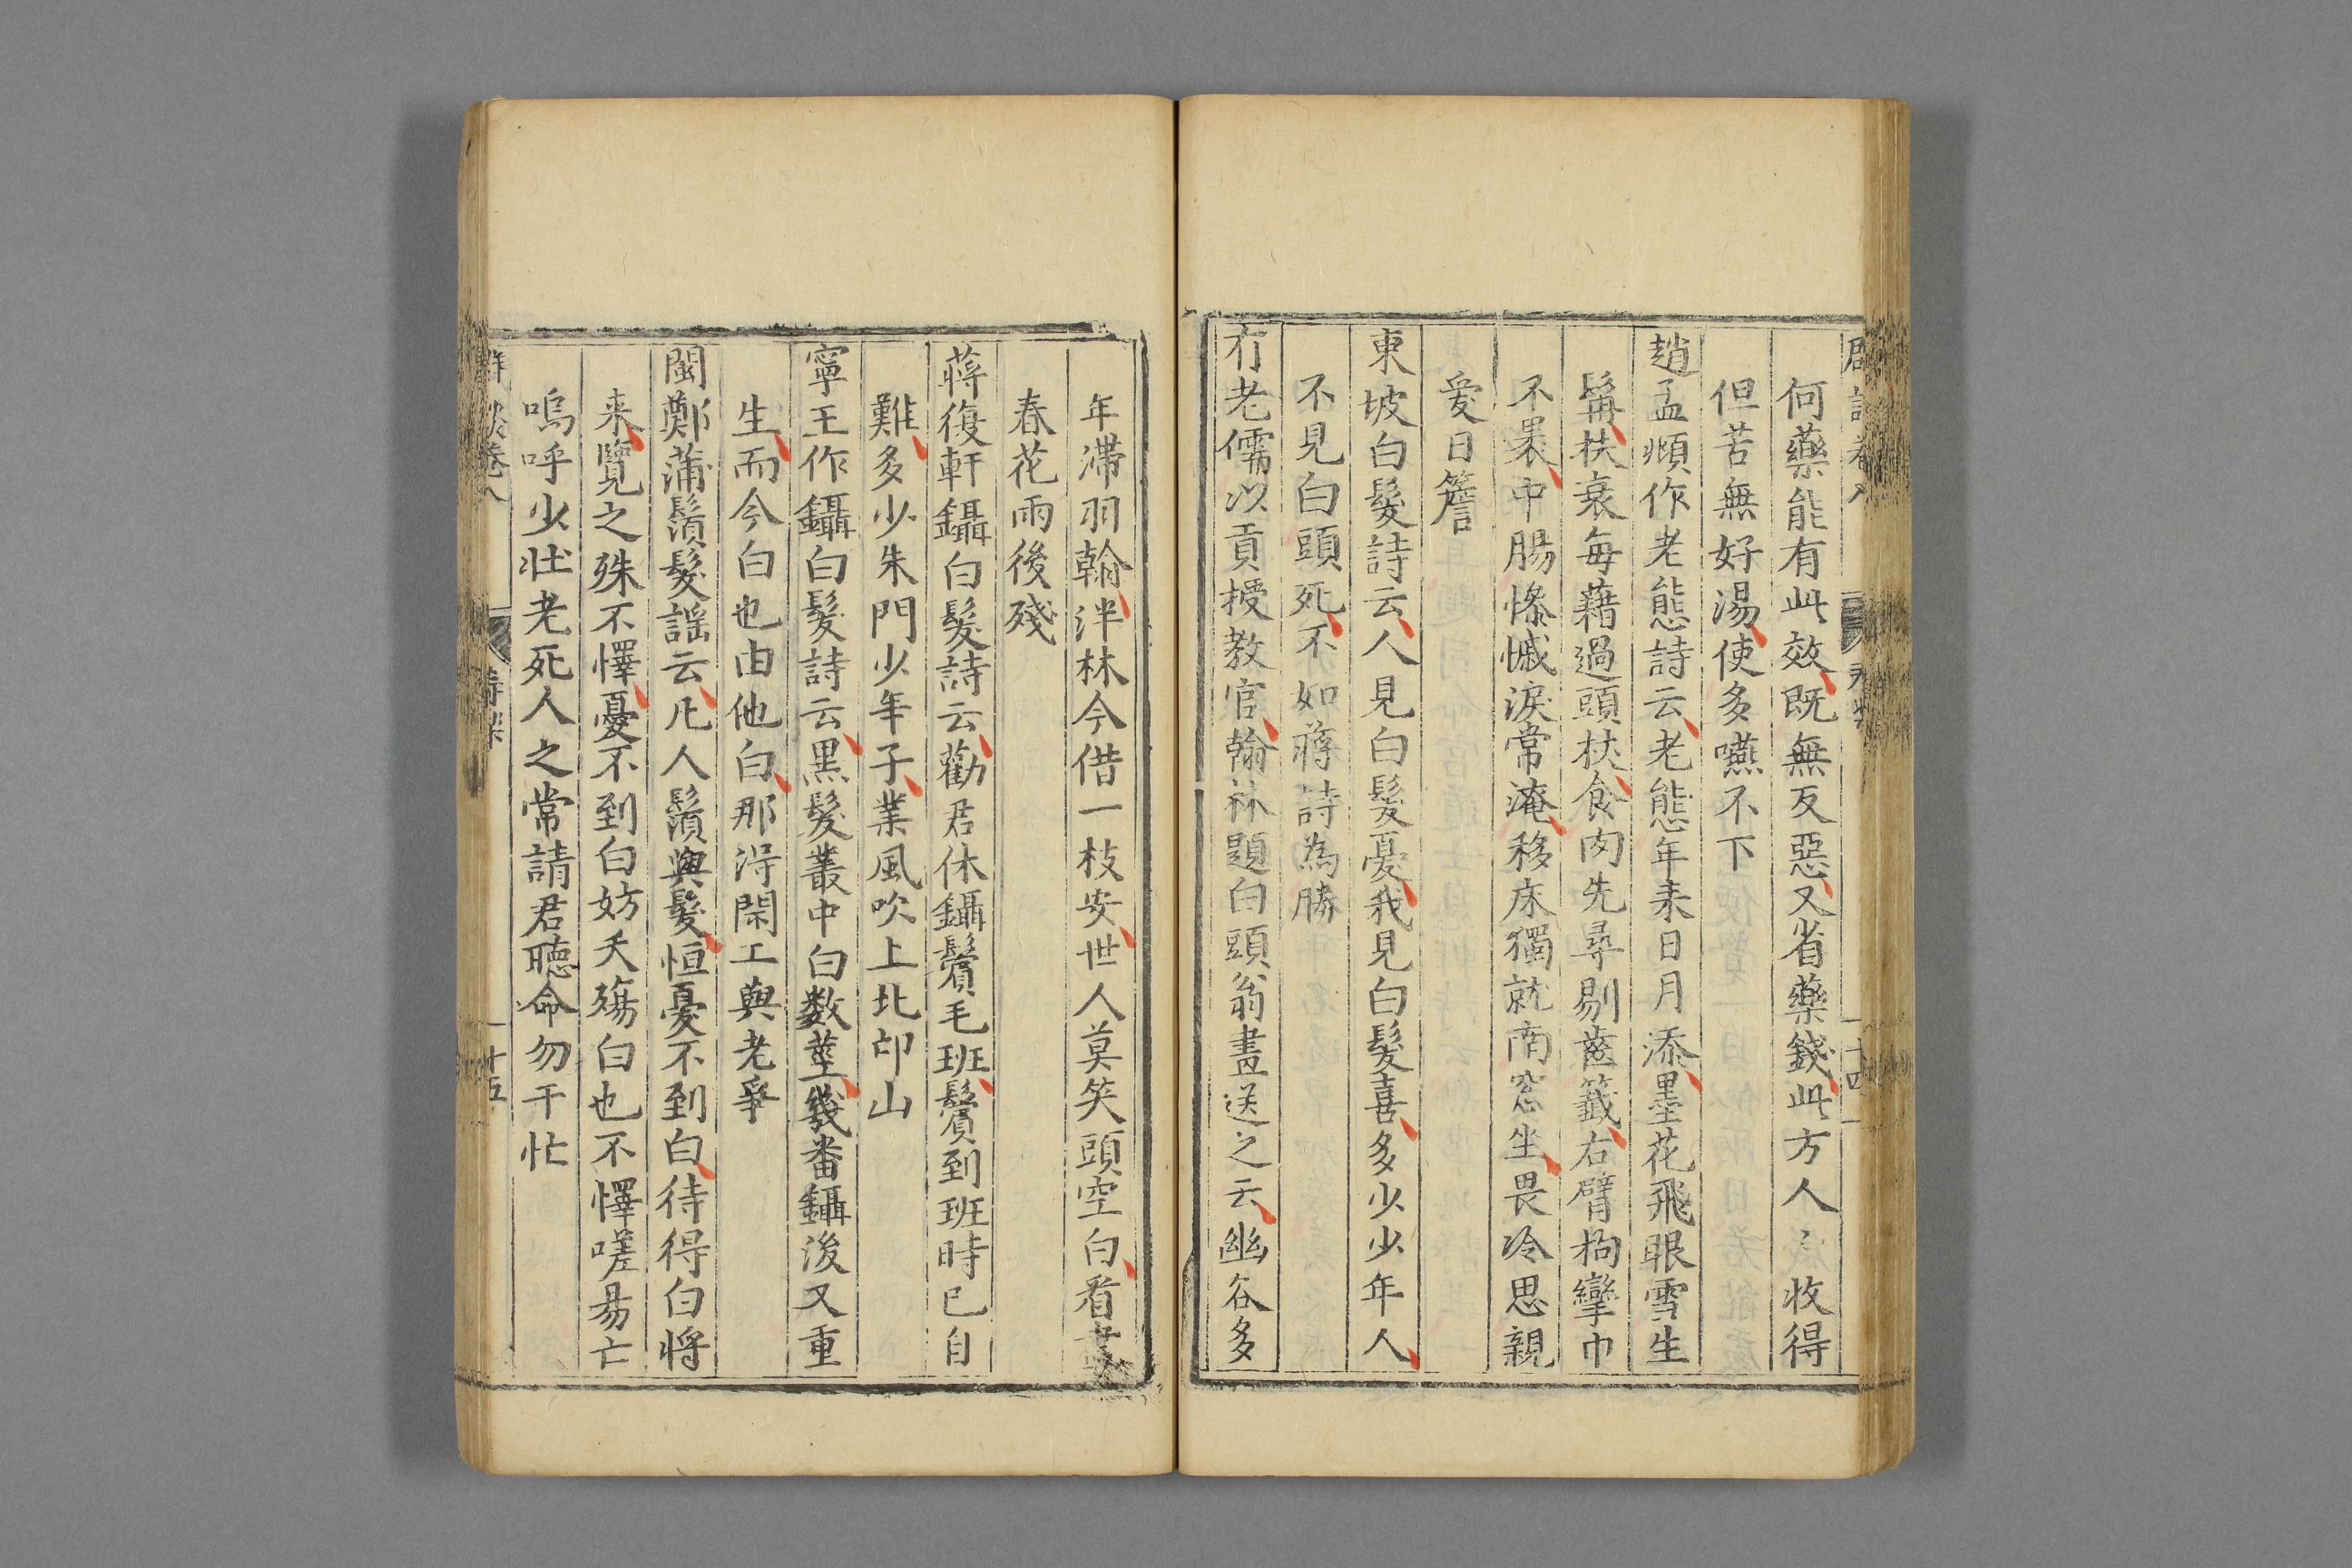 何藥能有此效既無反惡又省藥錢此方人收得
但苦無好湯使多嚥不下
趙孟頫作老態詩云老態年来日月添墨花飛眼雪生
髯扶衰每藉過頭杖食肉先尋剔齒籤右臂拘攣巾
不裹中腸慘慽淚常淹移床獨就南窓坐畏冷思親
爱日簷
東坡白髮詩云人見白髮憂我見白髮喜多少少年人
不見白頭死不如蔣詩為勝
冇老儒以貢授教官翰林題白頭翁畫送之云幽谷多
年滯羽翰泮林今借一枝安世人莫笑頭空白看盡
春花雨後殘
蔣復軒鑷白髮詩云勸君休鑷鬢毛班鬢到班時已自
難多少朱門少年子業風吹上北邙山
寧王作鑷白髮詩云黑髮叢中白数莖幾番鑷後又重
生而今白也由他白那淂閑工與老爭
閩鄭蒲鬚髮謡云凢人鬚與髮恒憂不到白待得白将
来覽之殊不懌憂不到白妨夭殤白也不懌嗟昜亡
嗚呼少壮老死人之常請君聽命勿干忙
群談卷八
十五